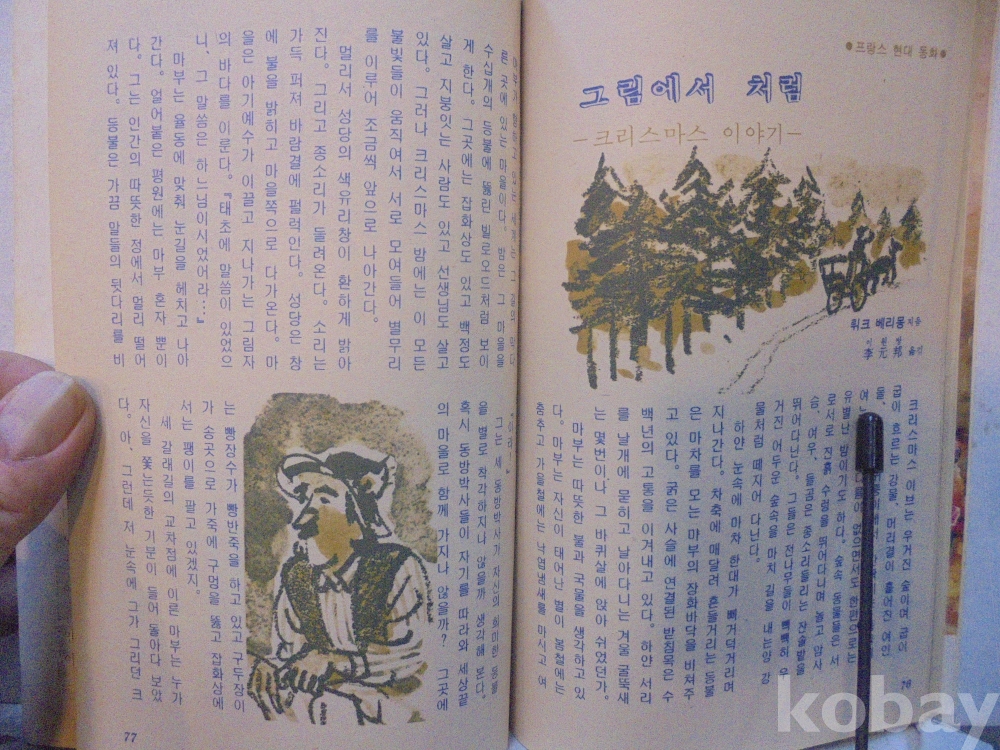 ●프랑스 현대 동화●
그림에서 처럼
—크리스마스 이야기—
뤼크 베리몽 지음
李元邦 옮김
크리스마스 이브는 우거진 숲이며 굽이
굽이 흐르는 강물, 머리결이 흩어진 여인
유별난 밤이기도 하다. 숲속 동물들은 서
로서로 진흙 수렁을 뛰어다니며 놀고 암사
슴, 여우, 들곰은 종소리들리는 잔솔밭을
뛰어다닌다. 그들은 전나무들이 빽빽히 우
거진 어두운 숲속을 마치 길을 내는양 강
물처럼 떼지어 다닌다.
하얀 눈속에 마차 한대가 삐거덕거리며
지나간다. 차축에 매달려 흔들거리는 등불
은 마차를 모는 마부의 장화바닥을 비쳐주
고 있다. 굵은 사슬에 연결된 받침목은 수
백년의 고통을 이겨내고 있다. 하얀 서리
를 날개에 묻히고 날아다니는 겨울 굴뚝새
는 몇번이나 그 바퀴살에 앉아 쉬었던가.
마부는 따뜻한 불과 국물을 생각하고 있
다. 마부는 자신이 태어난 별이 봄철에는
춤추고 가을철에는 낙엽냄새를 마시고 여
76
른 곳에 있는 마을이다. 밤은 그 마을을
수십개의 등불에 뚫린 빌로오드처럼 보이
게 한다. 그곳에는 잡화상도 있고 백정도
살고 지붕잇는 사람도 있고 선생님도 살고
있다. 그러나 크리스마스 밤에는 이 모든
불빛들이 움직여서 서로 모여들어 별무리
를 이루어 조금씩 앞으로 나아간다.
멀리서 성당의 색유리창이 환하게 밝아
진다. 그리고 종소리가 들려온다. 소리는
가득 퍼져 바람결에 펄럭인다. 성당은 창
에 불을 밝히고 마을쪽으로 다가온다. 마
을은 아기예수가 이끌고 지나가는 그림자
의 바다를 이룬다. 『태초에 말씀이 있었으
니, 그 말씀은 하느님이시었어라…』
마부는 율동에 맞춰 눈길을 헤치고 나아
간다. 얼어붙은 평원에는 마부 혼자 뿐이
다. 그는 인간의 따뜻한 정에서 멀리 떨어
져 있다. 등불은 가끔 말들의 뒷다리를 비
그는 세 동방박사가 자신의 희미한 등불
을 별로 착각하지나 않을까 생각해 본다.
혹시 동방박사들이 자기를 따라와 세상끝
의 마을로 함께 가지나 않을까? 그곳에
는 빵장수가 빵반죽을 하고 있고 구두장이
가 송곳으로 가죽에 구멍을 뚫고 잡화상에
서는 팽이를 팔고 있겠지.
세 갈래길의 교차점에 이른 마부는 누가
자신을 쫓는듯한 기분이 들어 돌아다 보았
다. 아, 그런데 저 눈속에 그가 그리던 크
77
kobay